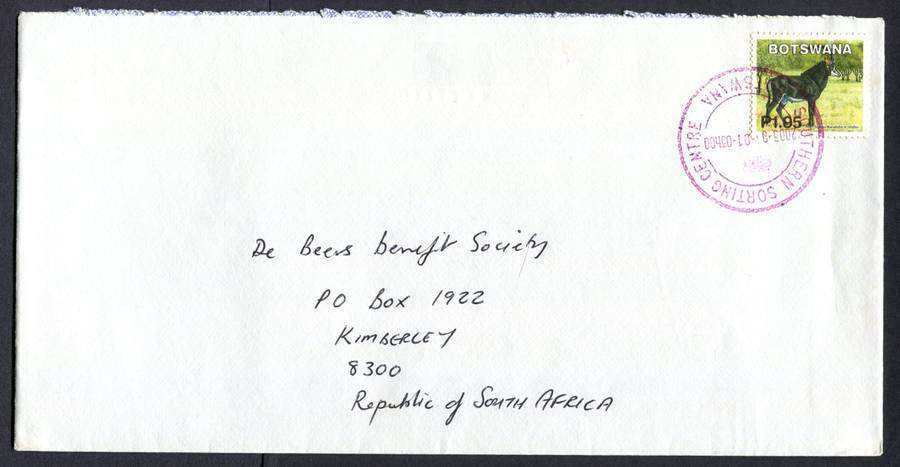 BOTSWANA
P1.95
SOUTHERN SORTING CENTRE
BOTSWANA
De Beers benefit Society
PO Box 1922
KIMBERLEY
8300
Republic of SOUTH AFRICA